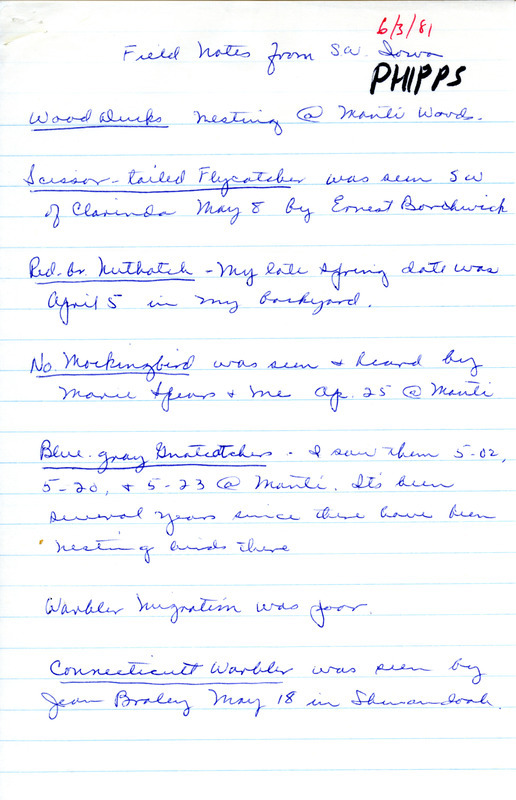 6/3/81
Field Notes from SW. Iowa
PHIPPS
Wood Ducks nesting @ Manti Woods.
Scissor-tailed Flycatcher was seen SW
of Clarinda May 8 by Ernest Borchwick
Red-br. Nuthatch - My late spring date was
April 5 in my backyard.
No. Mockingbird was seen & heard by
Marie Spears & me Ap. 25 @ Manti
Blue-gray Gnatcatchers - I saw them 5-02,
5-20, & 5-23 @ Manti. It's been
several years since there have been
nesting birds there
Warbler Migration was poor.
Connecticutt Warbler was seen by
Jean Braley May 18 in Shenandoah.